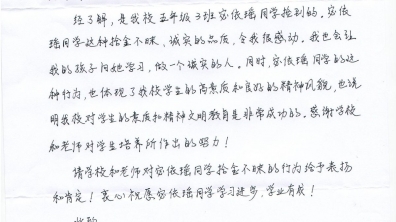 经了解，是我校五年级3班容依瑶同学捡到的。容依
瑶同学这种拾金不昧，诚实的品质，令我很感动。我也会让
我的孩子向她学习，做一个诚实的人。同时，容依瑶同学的这
种行为，也体现了我校学生的高素质和良好的精神风貌，也说
明我校对学生的素质和精神文明教育是非常成功的。感谢学校
和老师对学生培养所作出的努力！
请学校和老师对容依瑶同学拾金不昧的行为给予表扬
和肯定！衷心祝愿容依瑶同学学习进步，学业有成！
此致